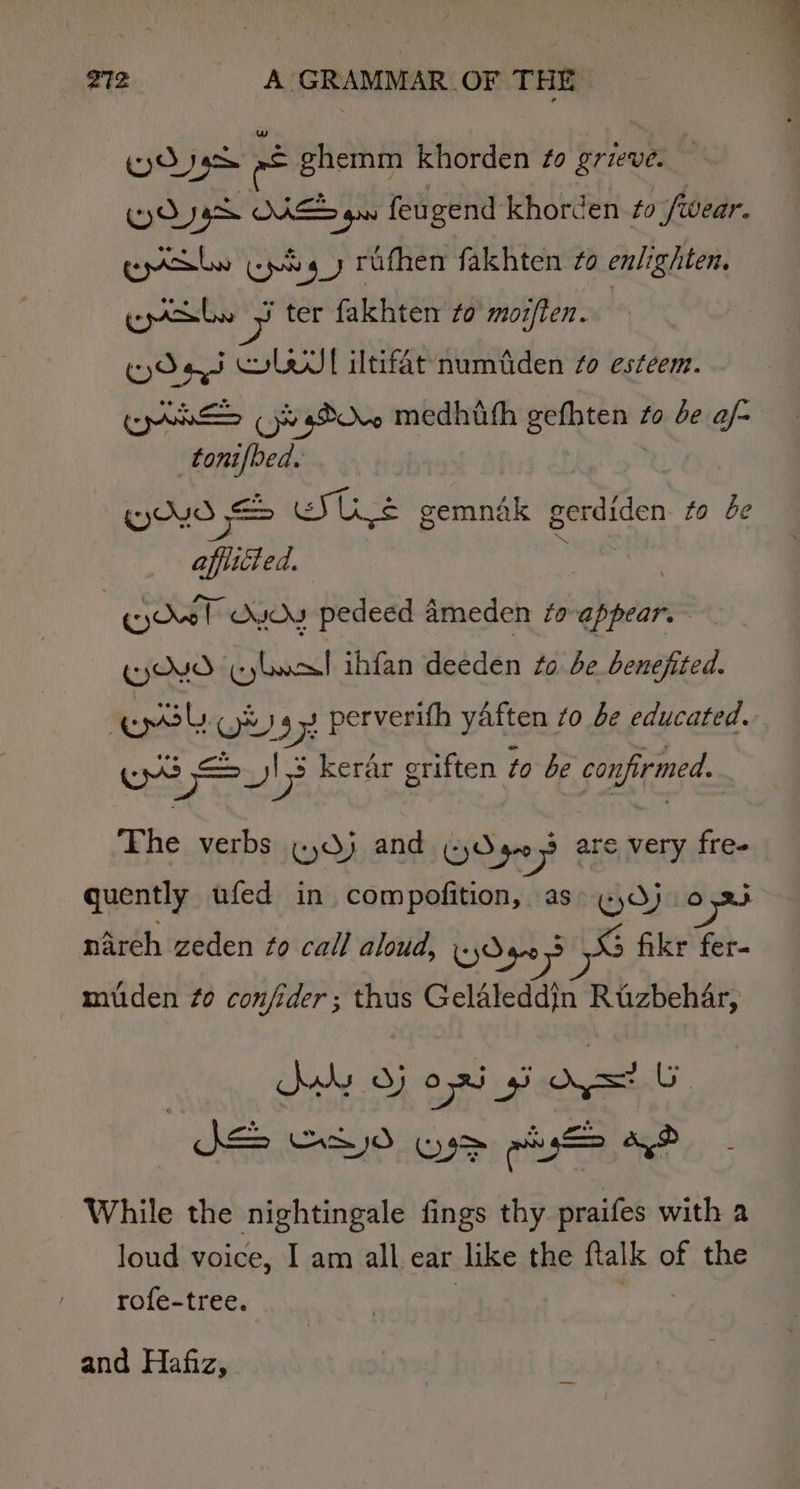 272 A GRAMMAR OF THE
غمّ خوردن ghemm khorden to grieve.
سوكند خوردن ſeugend khorden to ſwear.
روشن ساختن rûſhen ſakhten to enlighten.
تر ساختن ter ſakhten to moiſten.
التفات نمودن iltifât numûden to esteem.
مدهوش كشتن medhûſh geſhten to be aſ-
toniſhed.
غمناك كرديدن gemnâk gerdîden to be
afflicted.
پديد آمدن pedeed âmeden to appear.
احسان ديدن ihſan deeden to be benefited.
پرورش يافتن perveriſh yâften to be educated.
قرار كرفتن kerâr griften to be confirmed.
The verbs زدن and فرمودن are very fre-
quently uſed in compoſition, as نعره زدن
nâreh zeden to call aloud, فكر فرمودن fikr fer-
mûden to conſider; thus Gelâleddîn Rûzbehâr,
تا نحمد تو نعره زد بلبل
همه كوشم چون درخت كل
While the nightingale ſings thy praiſes with a
loud voice, I am all ear like the ſtalk of the
roſe-tree.
and Hafiz,